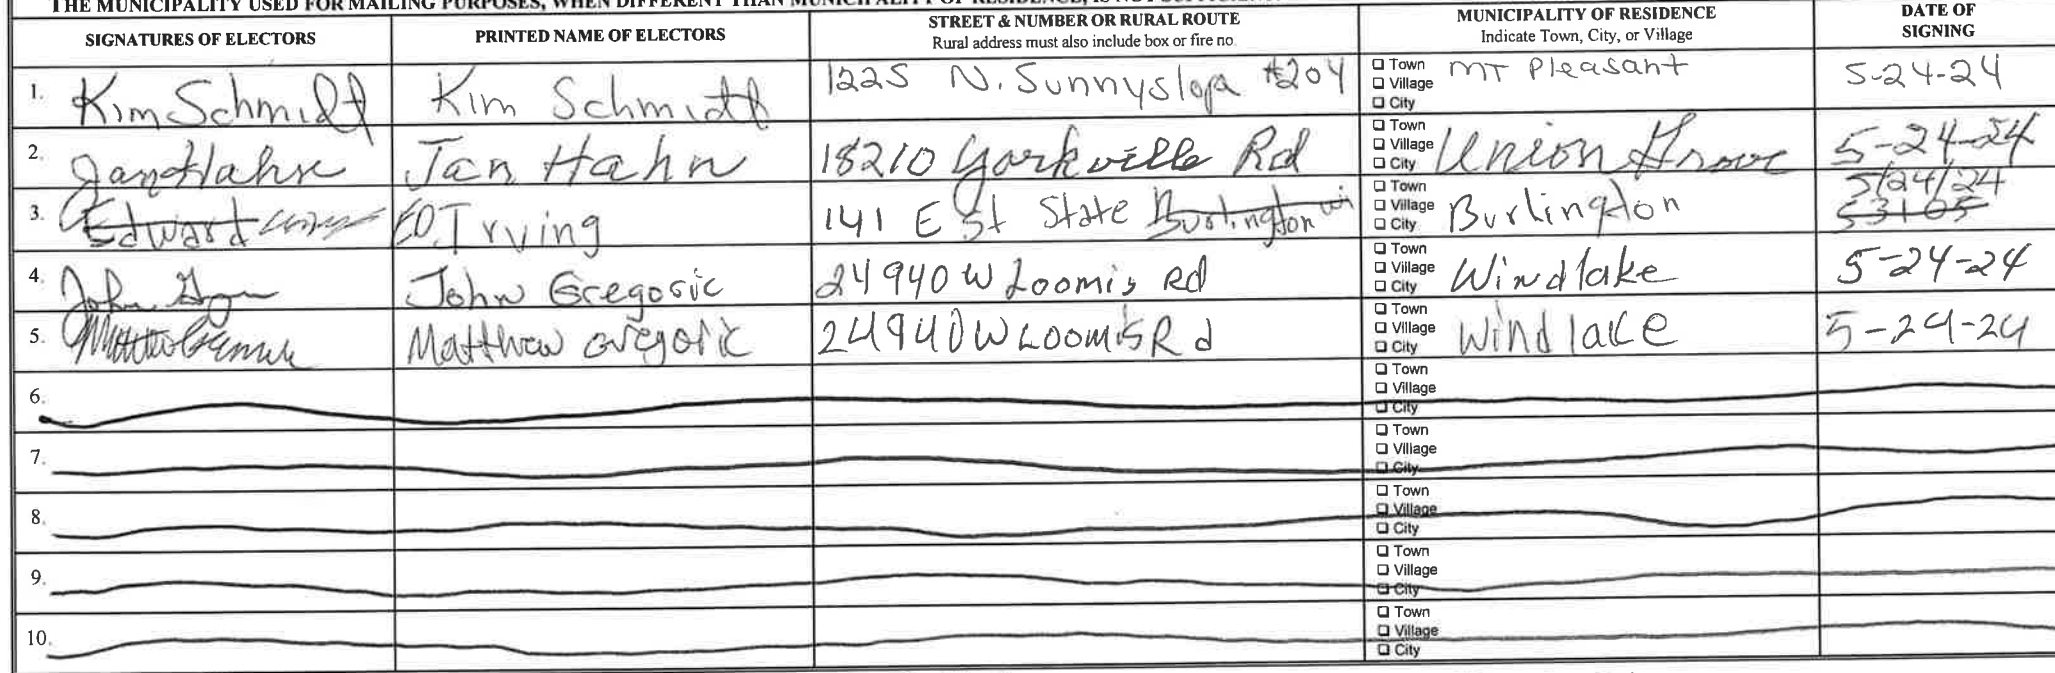 THE MUNICIPALITY USED FOR MAILING PURPOSES, WHEN DIFFERENT THAN MUNICIPALITY OF RESIDENCE, IS NOT SUFFICIENT.
SIGNATURES OF ELECTORS PRINTED NAME OF ELECTORS STREET & NUMBER OR RURAL ROUTE Rural address must also include box or fire no. MUNICIPALITY OF RESIDENCE Indicate Town, City, or Village DATE OF SIGNING
1. Kim Schmidt Kim Schmidt 1225 N. Sunnyslope #204 Town Village City MT Pleasant 5-24-24
2. Jan Hahn Jan Hahn 18210 Yorkville Rd Town Village City Union Grove 5-24-24
3. Edward ED. Irving 141 E St State Burlington wi Town Village City Burlington 5/24/24 53105
4. John John Gregoric 24940 W Loomis Rd Town Village City Windlake 5-24-24
5. Matthew Gregoric 24940 W Loomis Rd Town Village City Windlake 5-24-24
6. Town Village City
7. Town Village City
8. Town Village City
9. Town Village City
10. Town Village City